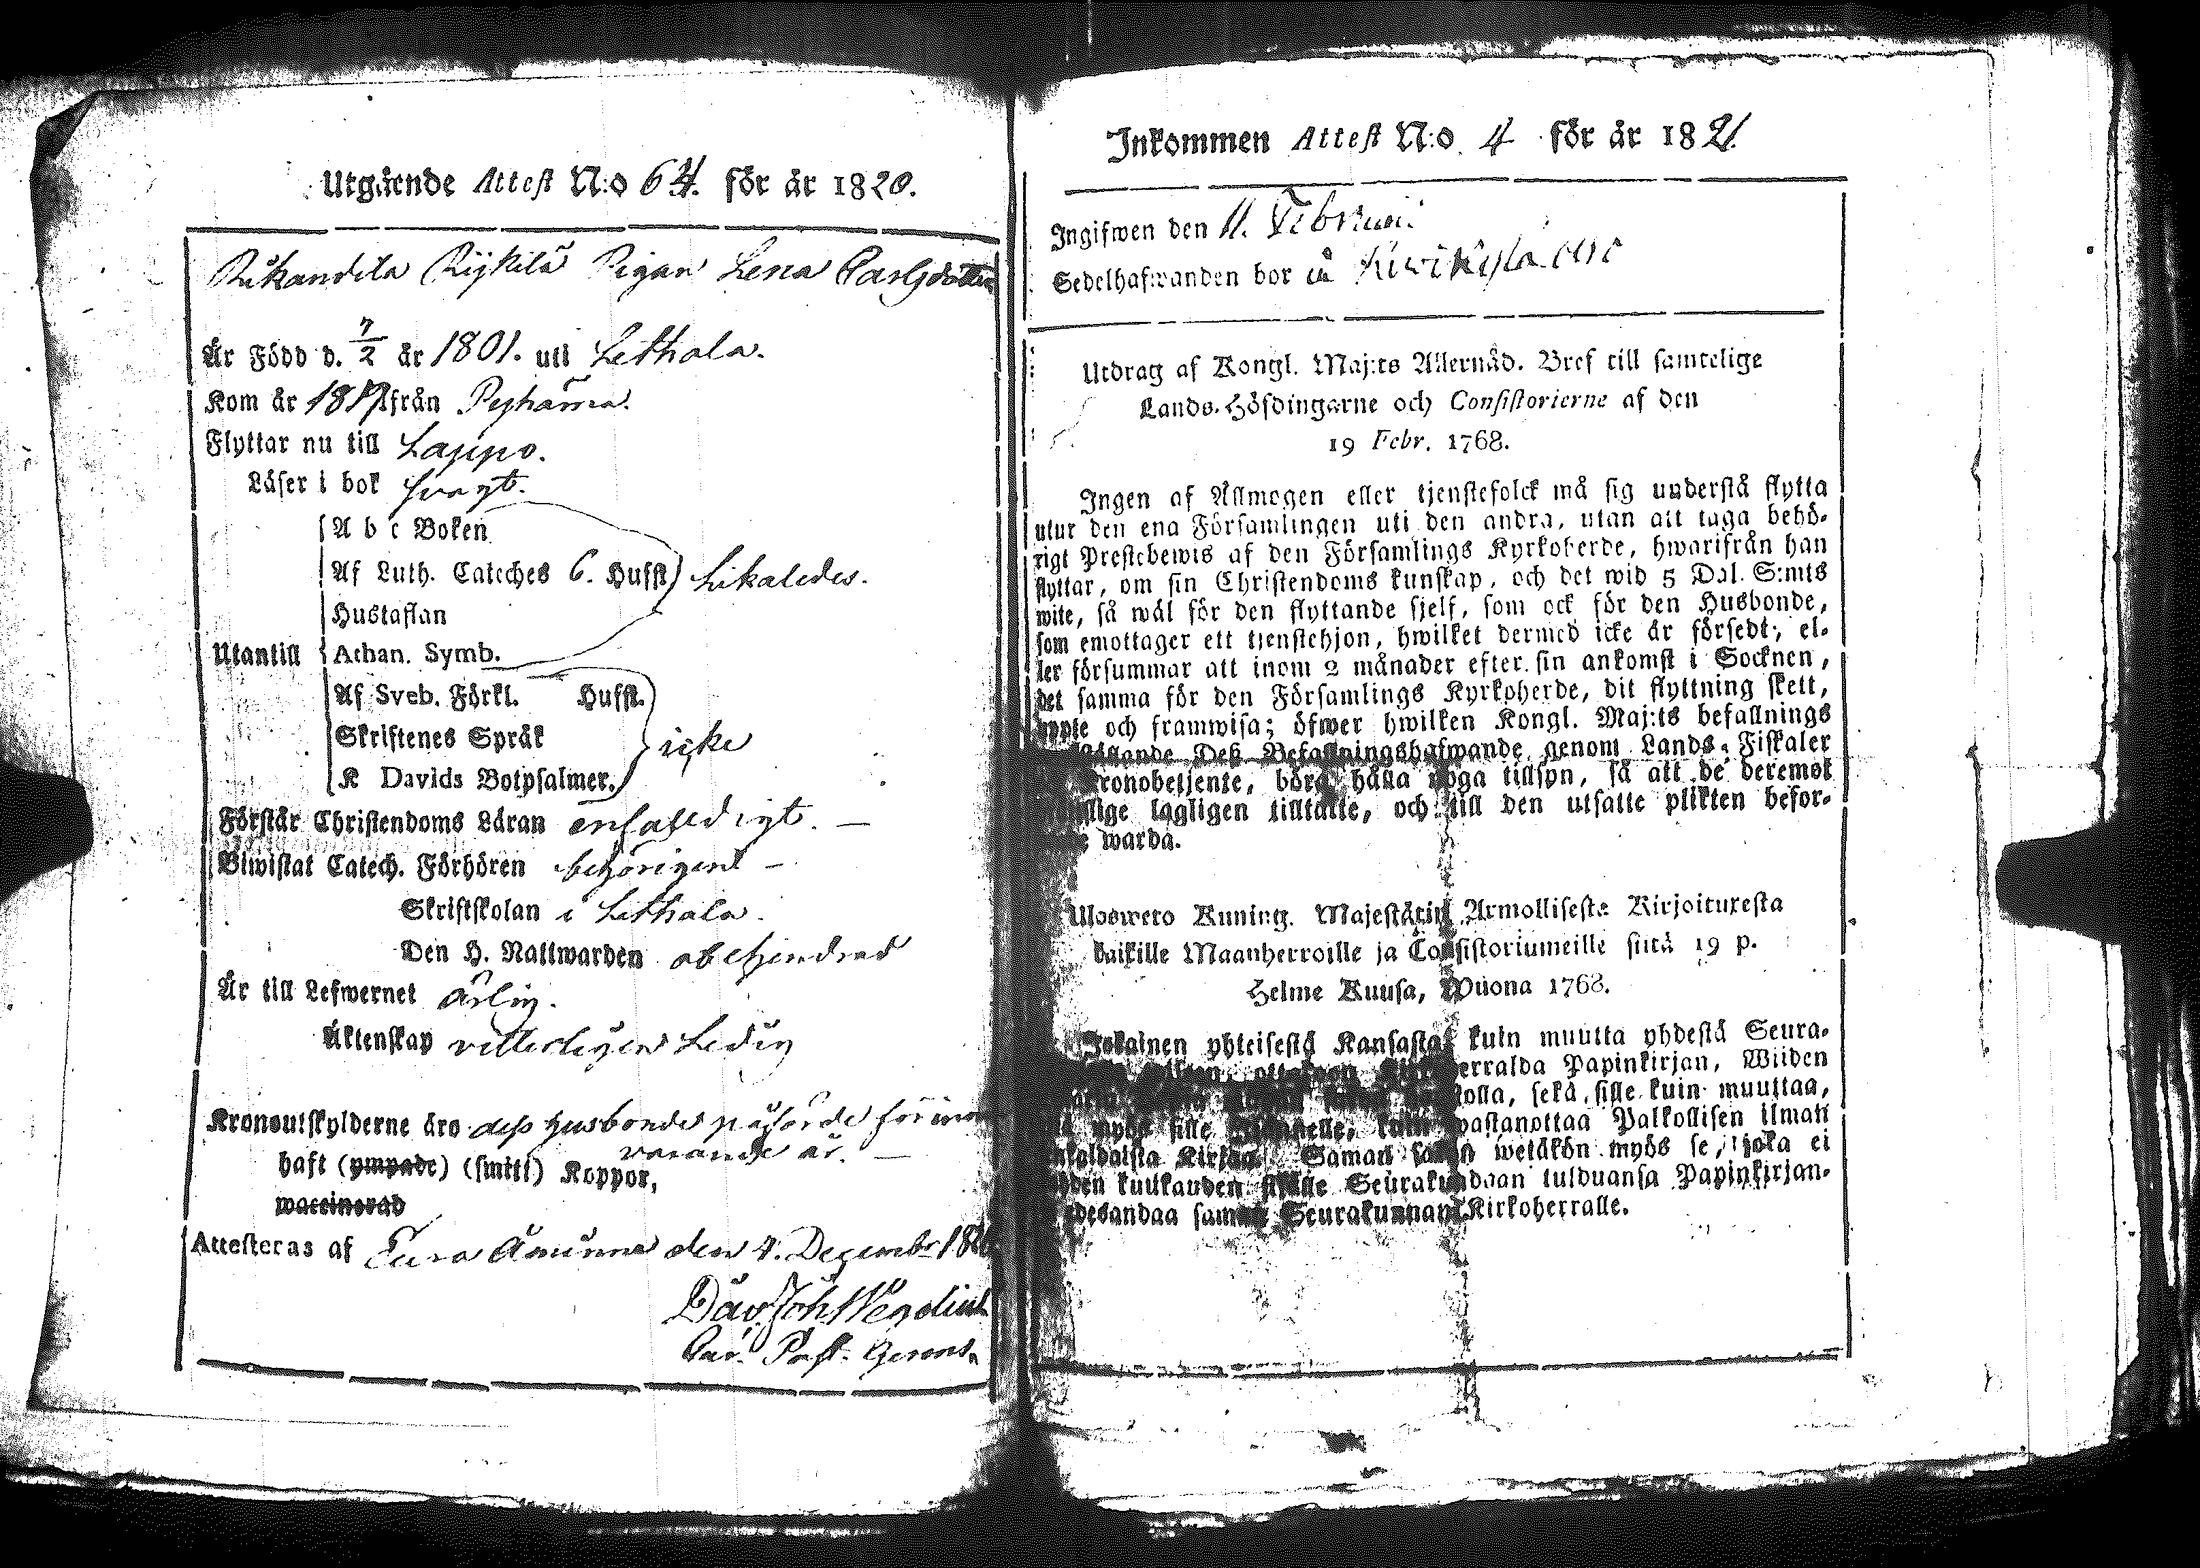 Utgående Attest N:o 64. för år 1820.
Rikandila Rijkilä Pigan Lena Carlsdotter
Är Född d. 7/2 år 1801. uti Lethala.
Kom år 1819 från Pyhäma.
Flyttar nu till Lappo.
Läser i bok svagt.
A b c Boken
Af Luth. Cateches 6. Hufst. Likaledes.
Hustaflan
Utantill Athan. Symb.
Af Sveb. Förkl. Hufst.
Skriftenes Språk icke
K Davids Botpsalmer.
Förstår Christendoms Läran enfaldigt. —
Biwistat Catech. Förhören behörigent —
Skriftskolan i Lethala.
Den H. Nattwarden obehindrad
Är till Lefwernet ärlig.
Äktenskap vitterligen Ledig
Kronoutskylderne äro dess husbonde påförde för inne
varande år. —
haft (ympade) (smitt) Koppor,
waccinerad
Attesteras af Eura Åminne den 4. Decembr 1820
Dav. Joh. Wegelius
Past. Gerens.
Inkommen Attest N:o 4 för år 1821.
Ingifwen den 11. Februarii
Sedelhafwanden bor å
Utdrag af Kongl. Maj:ts Allernåd. Bref till samtelige
Lands-Höfdingarne och Consistorierne af den
19 Febr. 1768.
Ingen af Allmogen eller tjenstefolck må sig understå flytta
utur den ena Församlingen uti den andra, utan att taga behö-
rigt Prestebewis af den Församlings Kyrkoherde, hwarifrån han
flyttar, om sin Christendoms kunskap, och det wid 5 Dal. S:mts
wite, så wäl för den flyttande sjelf, som ock för den Husbonde,
som emottager ett tjenstehjon, hwilket dermed icke är försedt, el-
ler försummar att inom 2 månader efter sin ankomst i Socknen,
det samma för den Församlings Kyrkoherde, dit flyttning skett,
uppte och framwisa; öfwer hwilken Kongl. Maj:ts befallnings
Deß Befallningshafwande genom Lands-Fiskaler
Kronobetjente, böra hålla noga tillsyn, så att de deremot
lagligen tilltalte, och till den utsatte plikten befor-
warda.
Uloswero Kuning. Majestätin Armollisesta Kirjoituxesta
kaikille Maanherroille ja Consistoriumeille siitä 19 p.
Helme Kuusa, Wuona 1768.
Jokainen yhteisestä Kansasta, kuin muutta yhdestä Seura-
Papinkirjan, Wiiden
sekä sille kuin muuttaa,
myös sille kuin wastanottaa Palkollisen ilman
Kirjaa. Saman wetäkön myös se, joka ei
kuukauden Seurakundaan tulduansa Papinkirjan-
Seurakunnan Kirkoherralle.